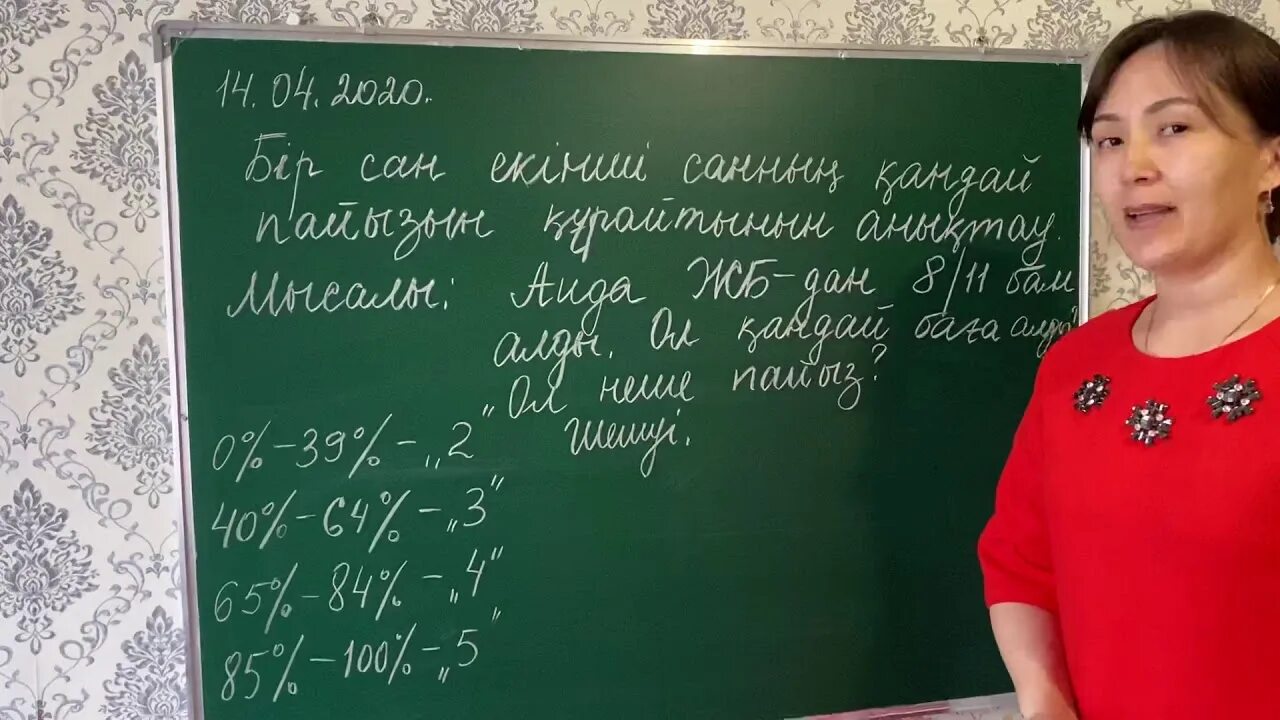 14.04.2020.
Бір сан екінші санның қандай
пайызын құрайтынын анықтау.
Мысалы: Аида ЖБ-дан 8/11 балл
алды. Ол қандай баға алды?
Ол неше пайыз?
Шешуі.
0%-39%-„2"
40%-64%-„3"
65%-84%-„4"
85%-100%-„5"